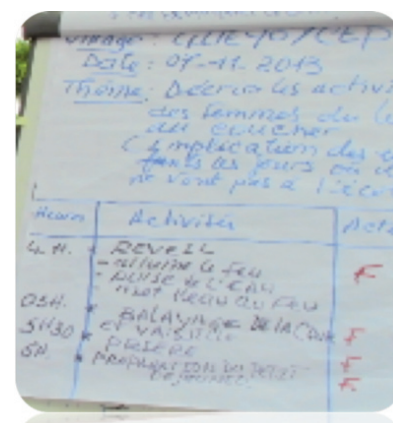 Village : GUEYO/CEP
Date : 07-11-2013
Thème : Décrire les activi
des femmes du le
au coucher
(implication des e
les jours où
ne vont pas à l'éco
Heures Activités Acte
4H. * REVEIL
- allume le feu F
- puise de l'EAU
- met l'eau au feu
05H. * BALAYAGE DE LA COUR F
5H30 ET VAISSELLE
* PRIERE F
6H. * PREPARATION DU PETIT F
DEJEUNER